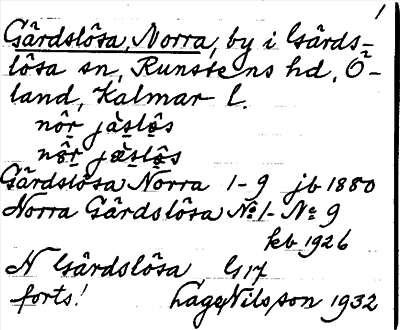 1
Gårdslösa, Norra, by i Gårds-
lösa sn, Runstens hd, Ö-
land, Kalmar l.
nör jàslös
nör jæslös
Gårdslösa Norra 1-9 jb 1880
Norra Gårdslösa № 1 - № 9
kb 1926
N Gårdslösa G17
forts! Nilsson 1932